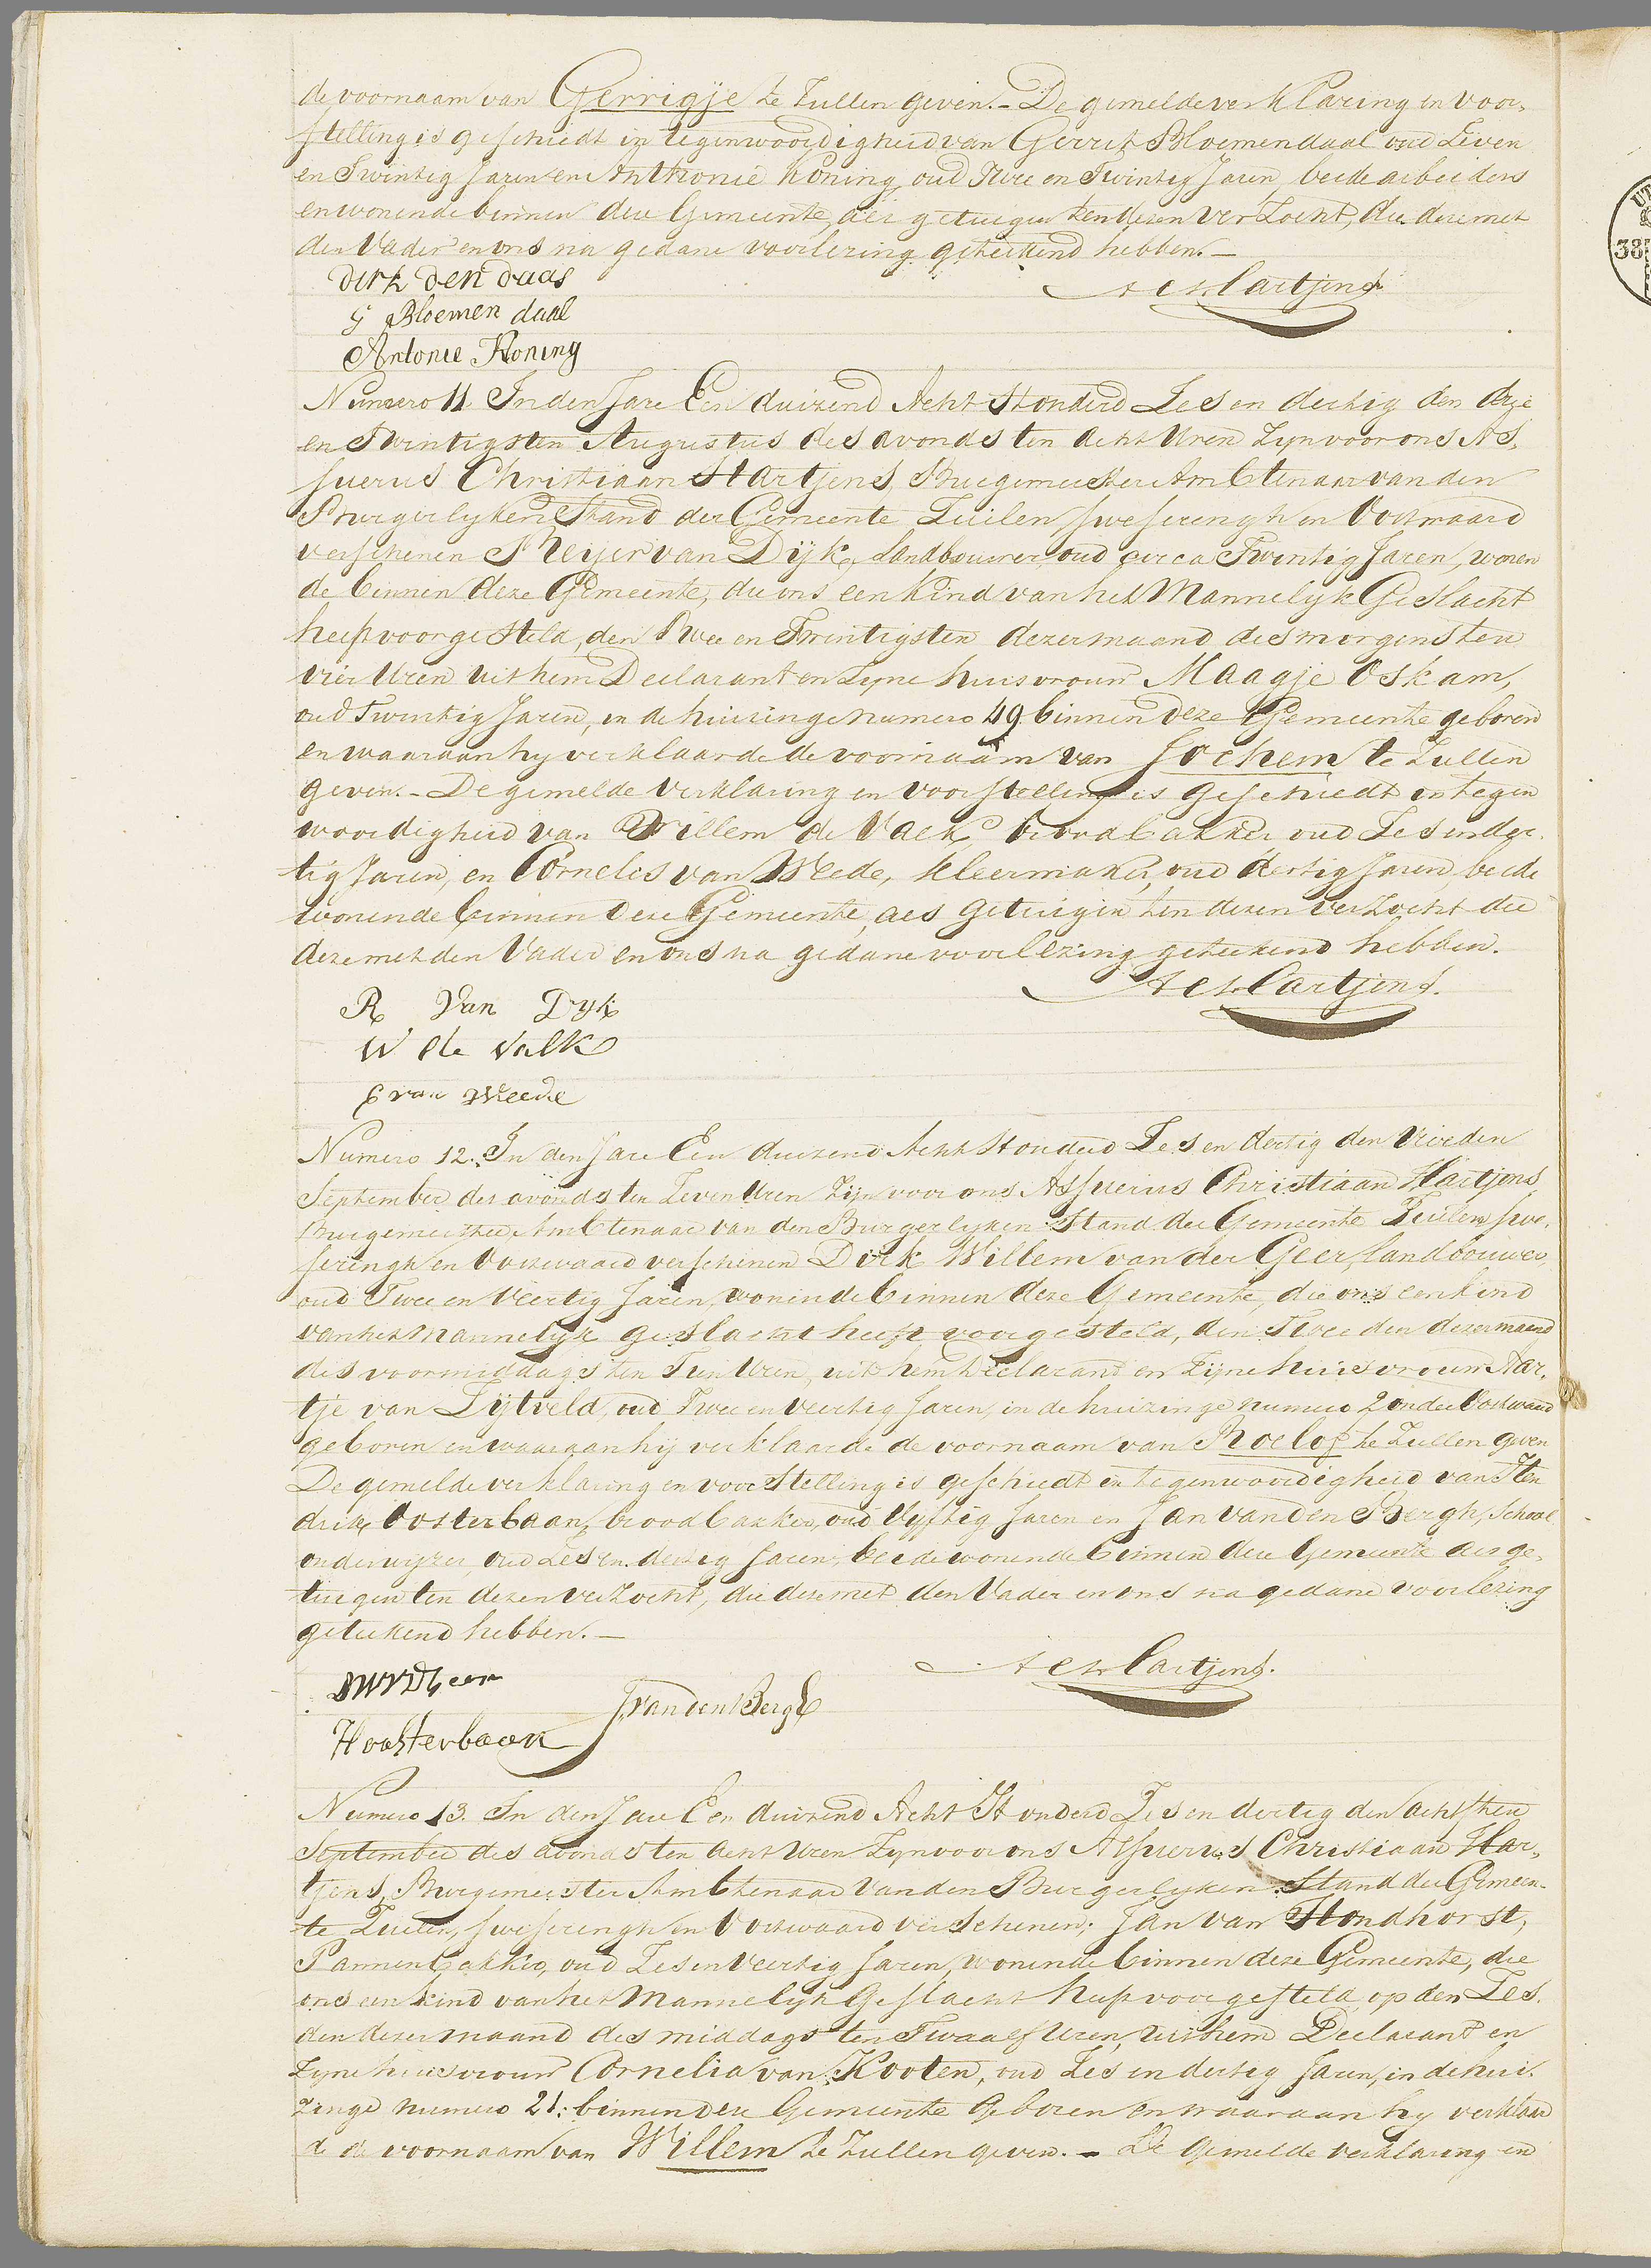 de voornaam van Gerrigje te zullen geven. - De gemelde verklaring en voor-
stelling is geschiedt in tegenwoordigheid van Gerrit Bloemendaal oud Zeven
en Twintig Jaren en Anthonie Koning, oud Twee en Twintig Jaren, beide arbeiders
en wonende binnen deze Gemeente, als getuigen ten dezen verzocht, die deze met
den Vader en ons na gedane voorlezing geteekend hebben. —
Dirk den daas
G Bloemen daal
Antonie Koning
A C Hartjens
Numero 11. In den Jare Een duizend Acht Honderd Zes en dertig den drie
en Twintigsten Augustus des avonds ten acht Uren Zyn voor ons As-
suerus Christiaan Hartjens, Burgemeester Ambtenaar van den
Burgerlyken Stand der Gemeente Tuilen Sweserengh en Voorwaard
verschenen Reijer van Dijk, Landbouwer, oud circa Twintig Jaren, wonen
de binnen deze Gemeente, die ons een Kind van het Mannelyk Geslacht
heeft voorgesteld, den Twee en Twintigsten dezer maand des morgens ten
vier Uren uit hem Declarant en Zyne huisvrouw Maagje Oskam,
oud Twintig Jaren, in de huizinge numero 49 binnen deze Gemeente geboren
en waaraan hy verklaarde de voornaam van Jochem te zullen
geven. - De gemelde verklaring en voorstelling is geschiedt in tegen
woordigheid van Willem de Valk, broodbakker oud Zes en der-
tig Jaren, en Cornelis van Weede, Kleermaker, oud dertig Jaren, beide
wonende binnen deze Gemeente, als getuigen ten dezen verzocht die
deze met den Vader en ons na gedane voorlezing geteekend hebben.
A C Hartjens.
R Van Dyk
W de Valk
C van Weede
Numero 12. In den Jare Een duizend Acht Honderd Zes en dertig den Vierden
September des avonds ten Zeven Uren Zijn voor ons Assuerus Christiaan Hartjens
Burgemeester Ambtenaar van den Burgerlyken Stand der Gemeente Tuilen Swe-
serengh en Voorwaard verschenen Dirk Willem van der Geer, Landbouwer,
oud Twee en Veertig Jaren, wonende binnen deze Gemeente, die ons een kind
van het Mannelyk geslacht heeft voorgesteld, den Tweeden dezer maand
des voormiddags ten Tien Uren, uit hem Declarant en Zijne huisvrouw Aar-
tje van Zijtveld, oud Twee en Veertig Jaren, in de huizinge numero 2 onder Voorwaard
geboren en waaraan hij verklaarde de voornaam van Roelof te zullen geven
De gemelde verklaring en voorstelling is geschiedt in tegenwoordigheid van Hen
drik Oosterbaan, broodbakker, oud Vyftig Jaren en Jan van den Bergh, School
onderwyzer, oud Zes en dertig Jaren, beide wonende binnen deze Gemeente als ge-
tuigen ten dezen verzocht, die deze met den Vader en ons na gedane voorlezing
geteekend hebben. —
A C Hartjens.
DWVDGeer
J van den Bergh
H oosterbaan
Numero 13. In den Jare Een duizend Acht Honderd Zes en dertig den achtsten
September des avonds ten acht Uren Zyn voor ons Assuerus Christiaan Har-
tjens, Burgemeester Ambtenaar van den Burgerlyken Stand der Gemeen-
te Tuilen, Sweserengh en Voorwaard verschenen; Jan van Hondhorst,
Pannenbakker, oud Zes en Veertig Jaren, wonende binnen deze Gemeente, die
ons een kind van het Mannelyk Geslacht heeft voorgesteld, op den Zes-
den dezer maand des middags ten Twaalf Uren, uit hem Declarant en
Zyne huisvrouw Cornelia van Kooten, oud Zes en dertig Jaren, in de hui-
zinge numero 21: binnen deze Gemeente geboren en waaraan hy verklaar
de de voornaam van Willem te zullen geven. - De gemelde verklaring en
38